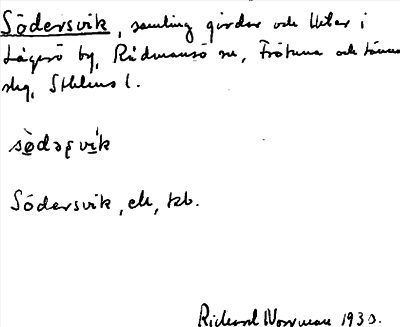 Södersvik, samling gårdar och villor i
Lågarö by, Rådmansö sn, Frötuna och Länna
skg, Sthlms l.
södəṣvik
Södersvik, ek, kb.
Rickard Norrman 193